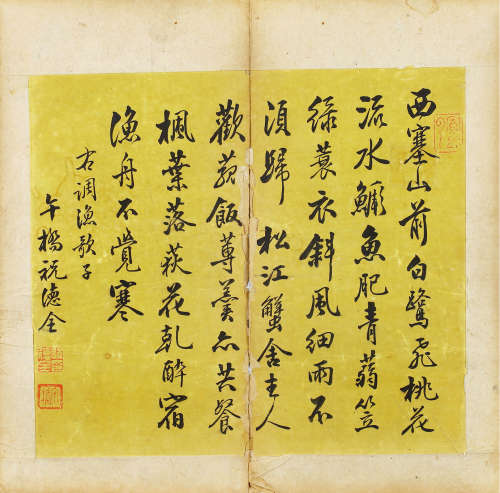 西塞山前白鷺飛桃花
流水鱖魚肥青蒻笠
綠蓑衣斜風細雨不
須歸 松江蟹舍主人
歡菰飯蓴羹亦共餐
楓葉落荻花乾醉宿
漁舟不覺寒
右調漁歌子
午橋祝德全